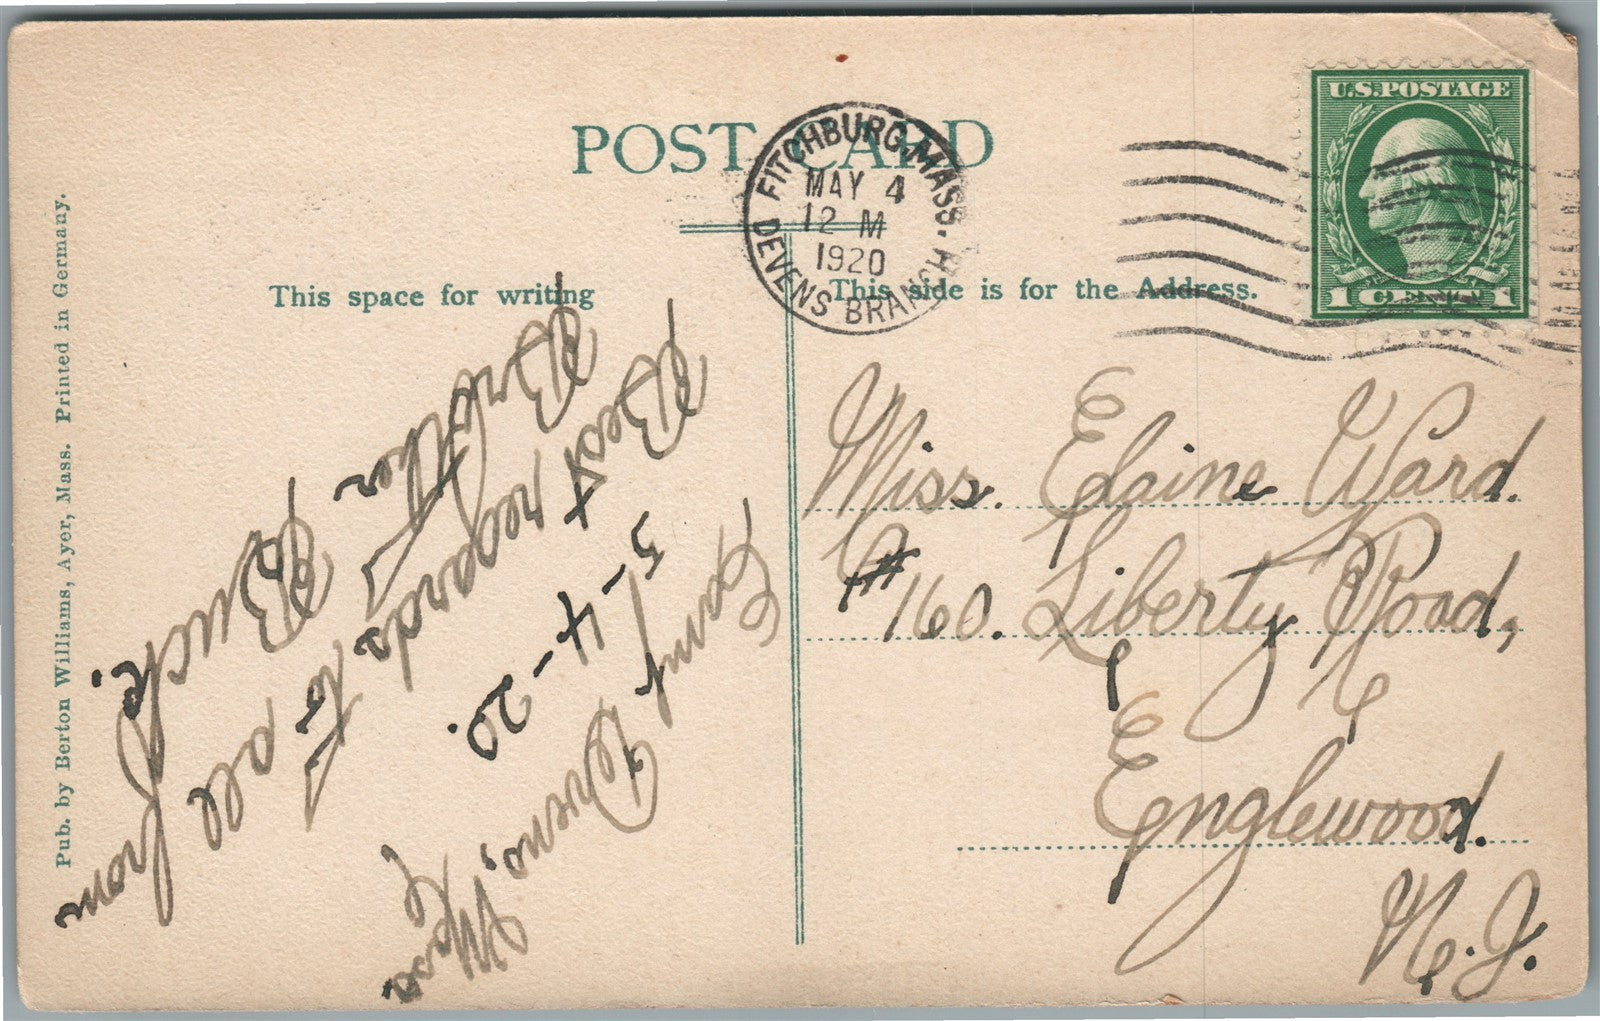 POST CARD
FITCHBURG, MASS.
MAY 4
12 M
1920
DEVENS BRANCH
U.S. POSTAGE
1 CENT 1
This space for writing
This side is for the Address.
Pub. by Berton Williams, Ayer, Mass. Printed in Germany.
Camp Devens,
Mass
5-4-20.
Best regards to all from
Brother Buck.
Miss. Elaine Ward.
#160. Liberty Road,
Englewood.
N.J.